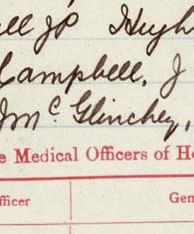 ell JP Hugh
Campbell, J
J McGlinchey,
e Medical Officers of He
fficer
Gen